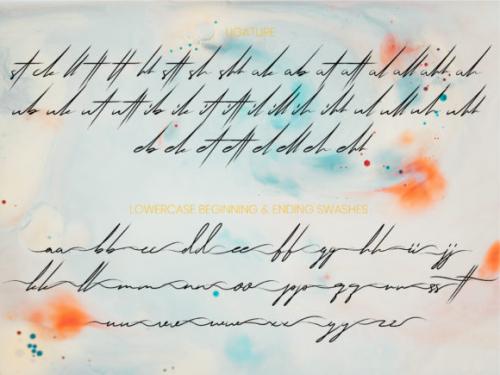 LIGATURE
st ck ll tt tt kk stt sh shh ak ab at att al all ahh ah
ub uk ut utt ib ik it itt il ill ih ihh ul ull uh uhh
eb ek et ett el ell eh ehh
LOWERCASE BEGINNING & ENDING SWASHES
aa bb cc dd ee ff gg hh ii jj
kk ll mm nn oo pp qq rr ss tt
uu vv ww xx yy zz